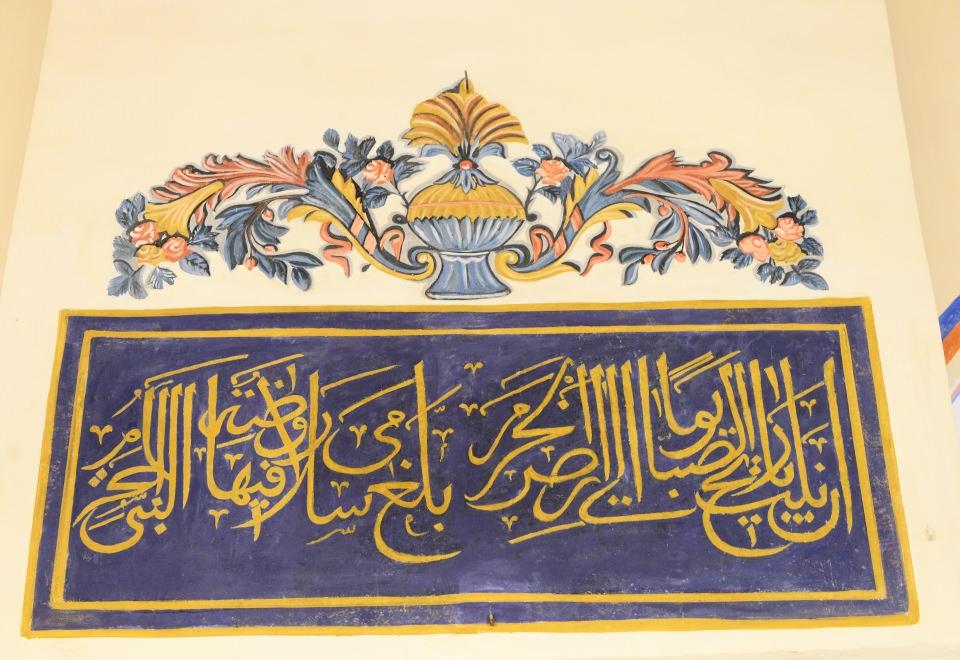 ان نلت يا ريح الصبا يوما الى ارض الحرم بلغ سلامى روضة فيها النبى المحترم